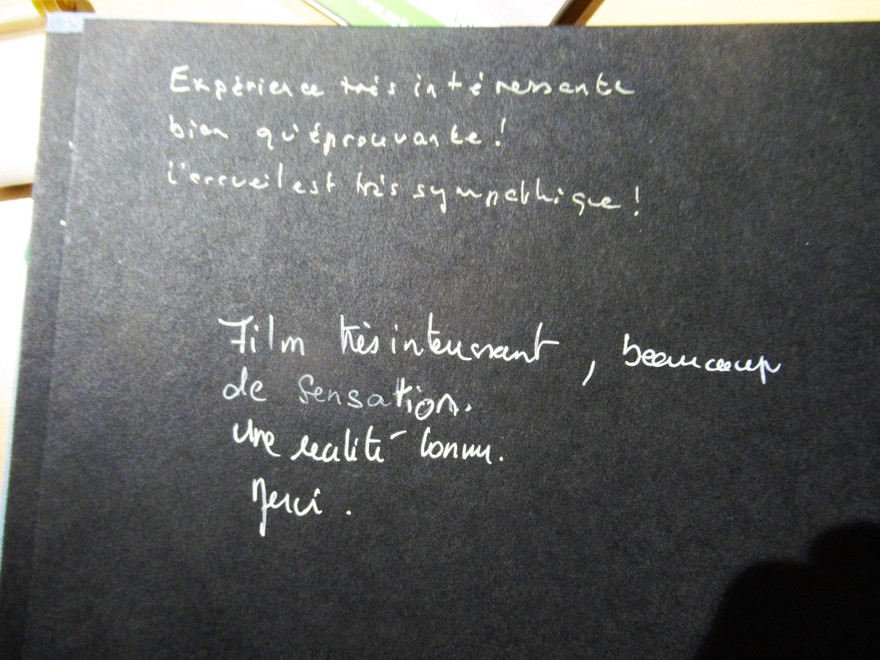 Expérience très intéressante
bien qu'éprouvante !
L'accueil est très sympathique !
Film très interessant, beaucoup
de sensation.
Une realité connu.
Merci.